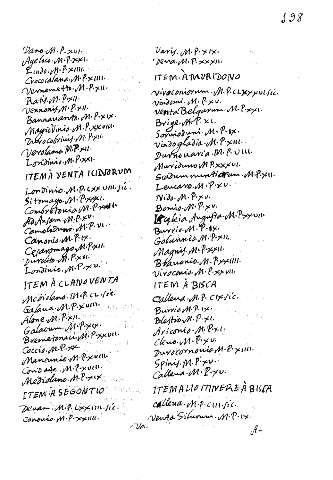 198
Dano. M.P. XVI.
Ageloco. M.P. XXI.
Lindo. M.P. XIIII.
Crococalana. M.P. XIIII.
Vernemetto. M.P. XII.
Ratis. M.P. XII.
Vennonis. M.P. XII.
Bannavanto. M.P. XIX.
Magiovinio. M.P. XXVIII.
Durocobrivis. M.P. XII.
Verolamo. M.P. XII.
Londinio. M.P. XXI.
ITEM À VENTA ICINORUM
Londinio. M.P. CXXVIII. sic.
Sitomago. M.P. XXXI.
Combretonio. M.P. XXII.
Ad Ansam. M.P. XV.
Camoloduno. M.P. VI.
Canonio. M.P. IX.
Cesaromago. M.P. XII.
Durolito. M.P. XVI.
Londinio. M.P. XV.
ITEM À CLANOVENTA
Mediolano. M.P. CL. sic.
Galava. M.P. XVIII.
Alone. M.P. XII.
Galacum. M.P. XIX.
Bremetonaci. M.P. XXVII.
Coccio. M.P. XX.
Mancunio. M.P. XVIII.
Condate. M.P. XVIII.
Mediolano. M.P. XIX.
ITEM À SEGONTIO
Devam. M.P. LXXIIII. sic.
Canovio. M.P. XXIIII.
Va-
Varis. M.P. XIX.
Deva. M.P. XXXII.
ITEM À MURIDONO
Viroconiorum. M.P. CLXXXVI. sic.
Vindomi. M.P. XV.
Venta Belgarum. M.P. XXI.
Brige. M.P. XI.
Sorvioduni. M.P. IX.
Vindogladia. M.P. XIII.
Durnovaria. M.P. VIII.
Moriduno. M.P. XXXVI.
Scadum nuntiorum. M.P. XII.
Leucaro. M.P. XV.
Nido. M.P. XV.
Bomio. M.P. XV.
Iscelegia Augusta. M.P. XXVII.
Burrio. M.P. IX.
Gobannio. M.P. XII.
Magnis. M.P. XXII.
Bravonio. M.P. XXIIII.
Viroconio. M.P. XXVII.
ITEM À BISCA
Calleva. M.P. CIX. sic.
Burrio. M.P. IX.
Blestio. M.P. XI.
Ariconio. M.P. XI.
Clevo. M.P. XV.
Durocornovio. M.P. XIIII.
Spinis. M.P. XV.
Calleva. M.P. XV.
ITEM ALIO ITINERE À BISCA
Calleva. M.P. CIII. sic.
Venta Silurum. M.P. IX.
A-